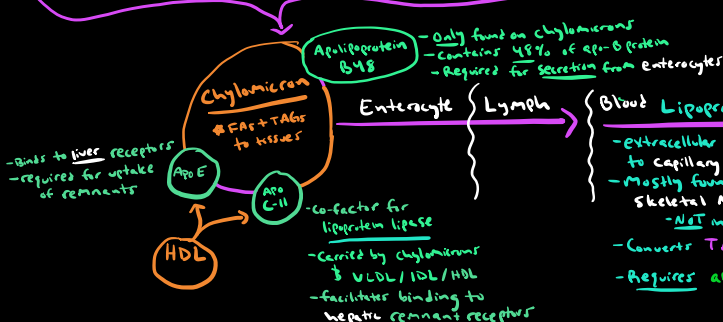 Apolipoprotein
B48
- Only found on chylomicrons
- Contains 48% of apo-B protein
- Required for secretion from enterocytes
Chylomicron
* FAs + TAGs
to tissues
Enterocyte
Lymph
Blood
- Binds to liver receptors
- required for uptake
of remnants
Apo E
Apo
C-II
HDL
- Co-factor for
lipoprotein lipase
- Carried by chylomicrons
& VLDL/IDL/HDL
- facilitates binding to
hepatic remnant receptors
- extracellular
to capillary
- Mostly
skeletal
- NOT
- Converts
- Requires